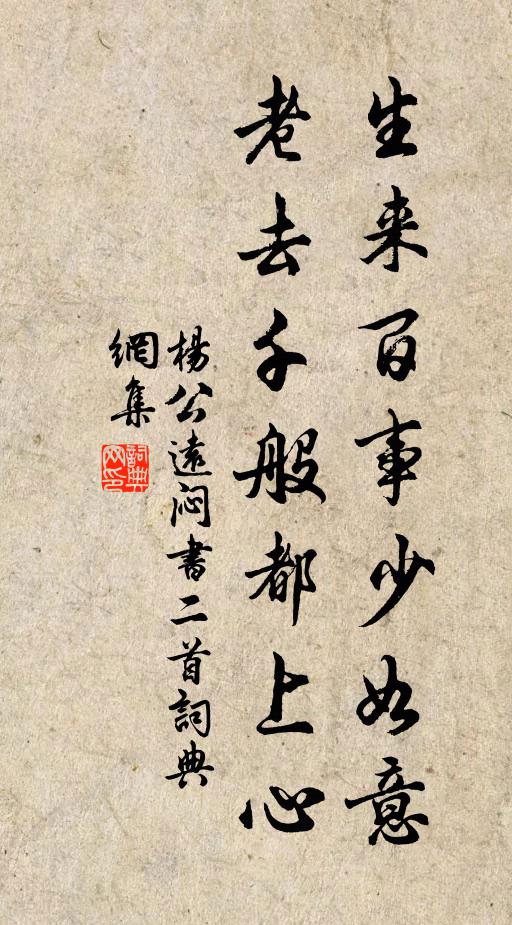 生来百事少如意
老去千般都上心
楊公遠闷書二首詞典
網集
詞典
网印